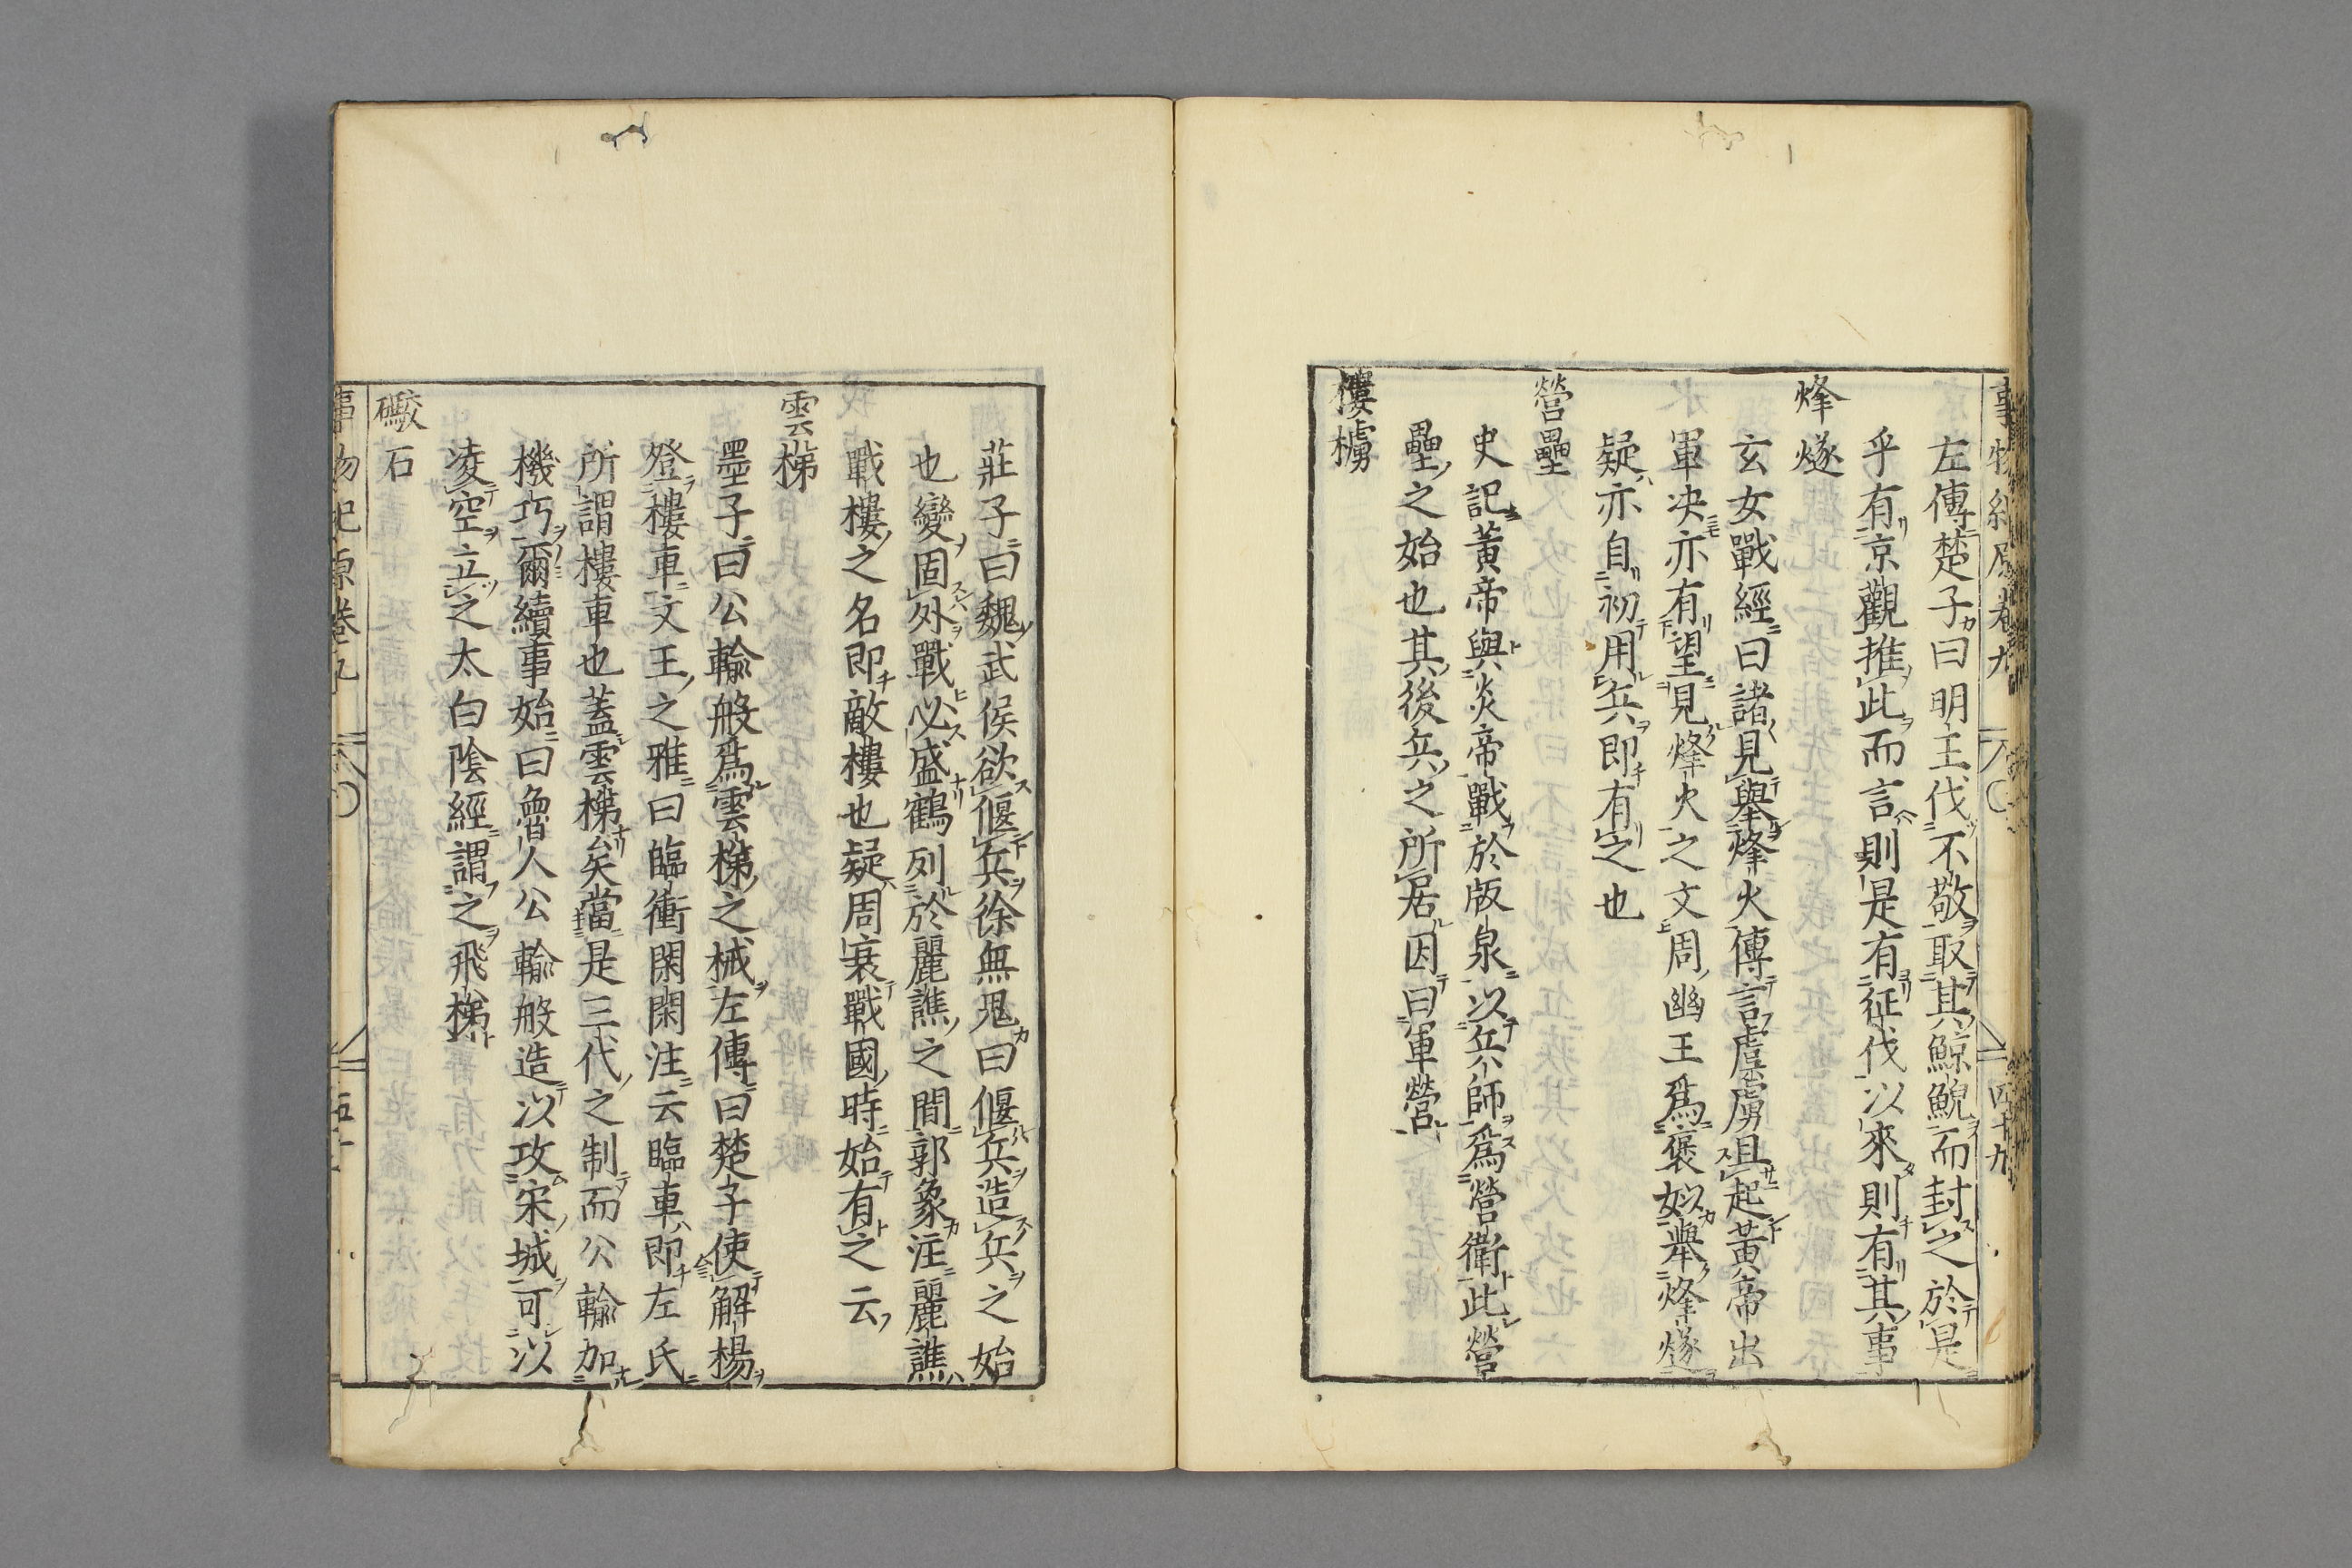 事物紀原卷九 四十九
左傳楚子曰明王伐不敬取其鯨鯢而封之於是
乎有京觀推此而言則是有征伐以來則有其事
烽燧
玄女戰經曰諸見舉烽火傳言虛虜且起黃帝出
軍决亦有望見烽火之文周幽王爲褒姒舉烽燧
疑亦自初用兵即有之也
營壘
史記黃帝與炎帝戰於版泉以兵師爲營衛此營
壘之始也其後兵之所居因曰軍營
樓櫓
莊子曰魏武侯欲偃兵徐無鬼曰偃兵造兵之始
也變固外戰必盛鶴列於麗譙之間郭象注麗譙
戰樓之名即敵樓也疑周衰戰國時始有之云
雲梯
墨子曰公輸般爲雲梯之械左傳曰楚子使解楊
登樓車文王之雅曰臨衝閑閑注云臨車即左氏
所謂樓車也蓋雲梯矣當是三代之制而公輸加
機巧爾續事始曰魯人公輸般造以攻宋城可以
凌空立之太白陰經謂之飛梯
礮石
事物紀原卷九